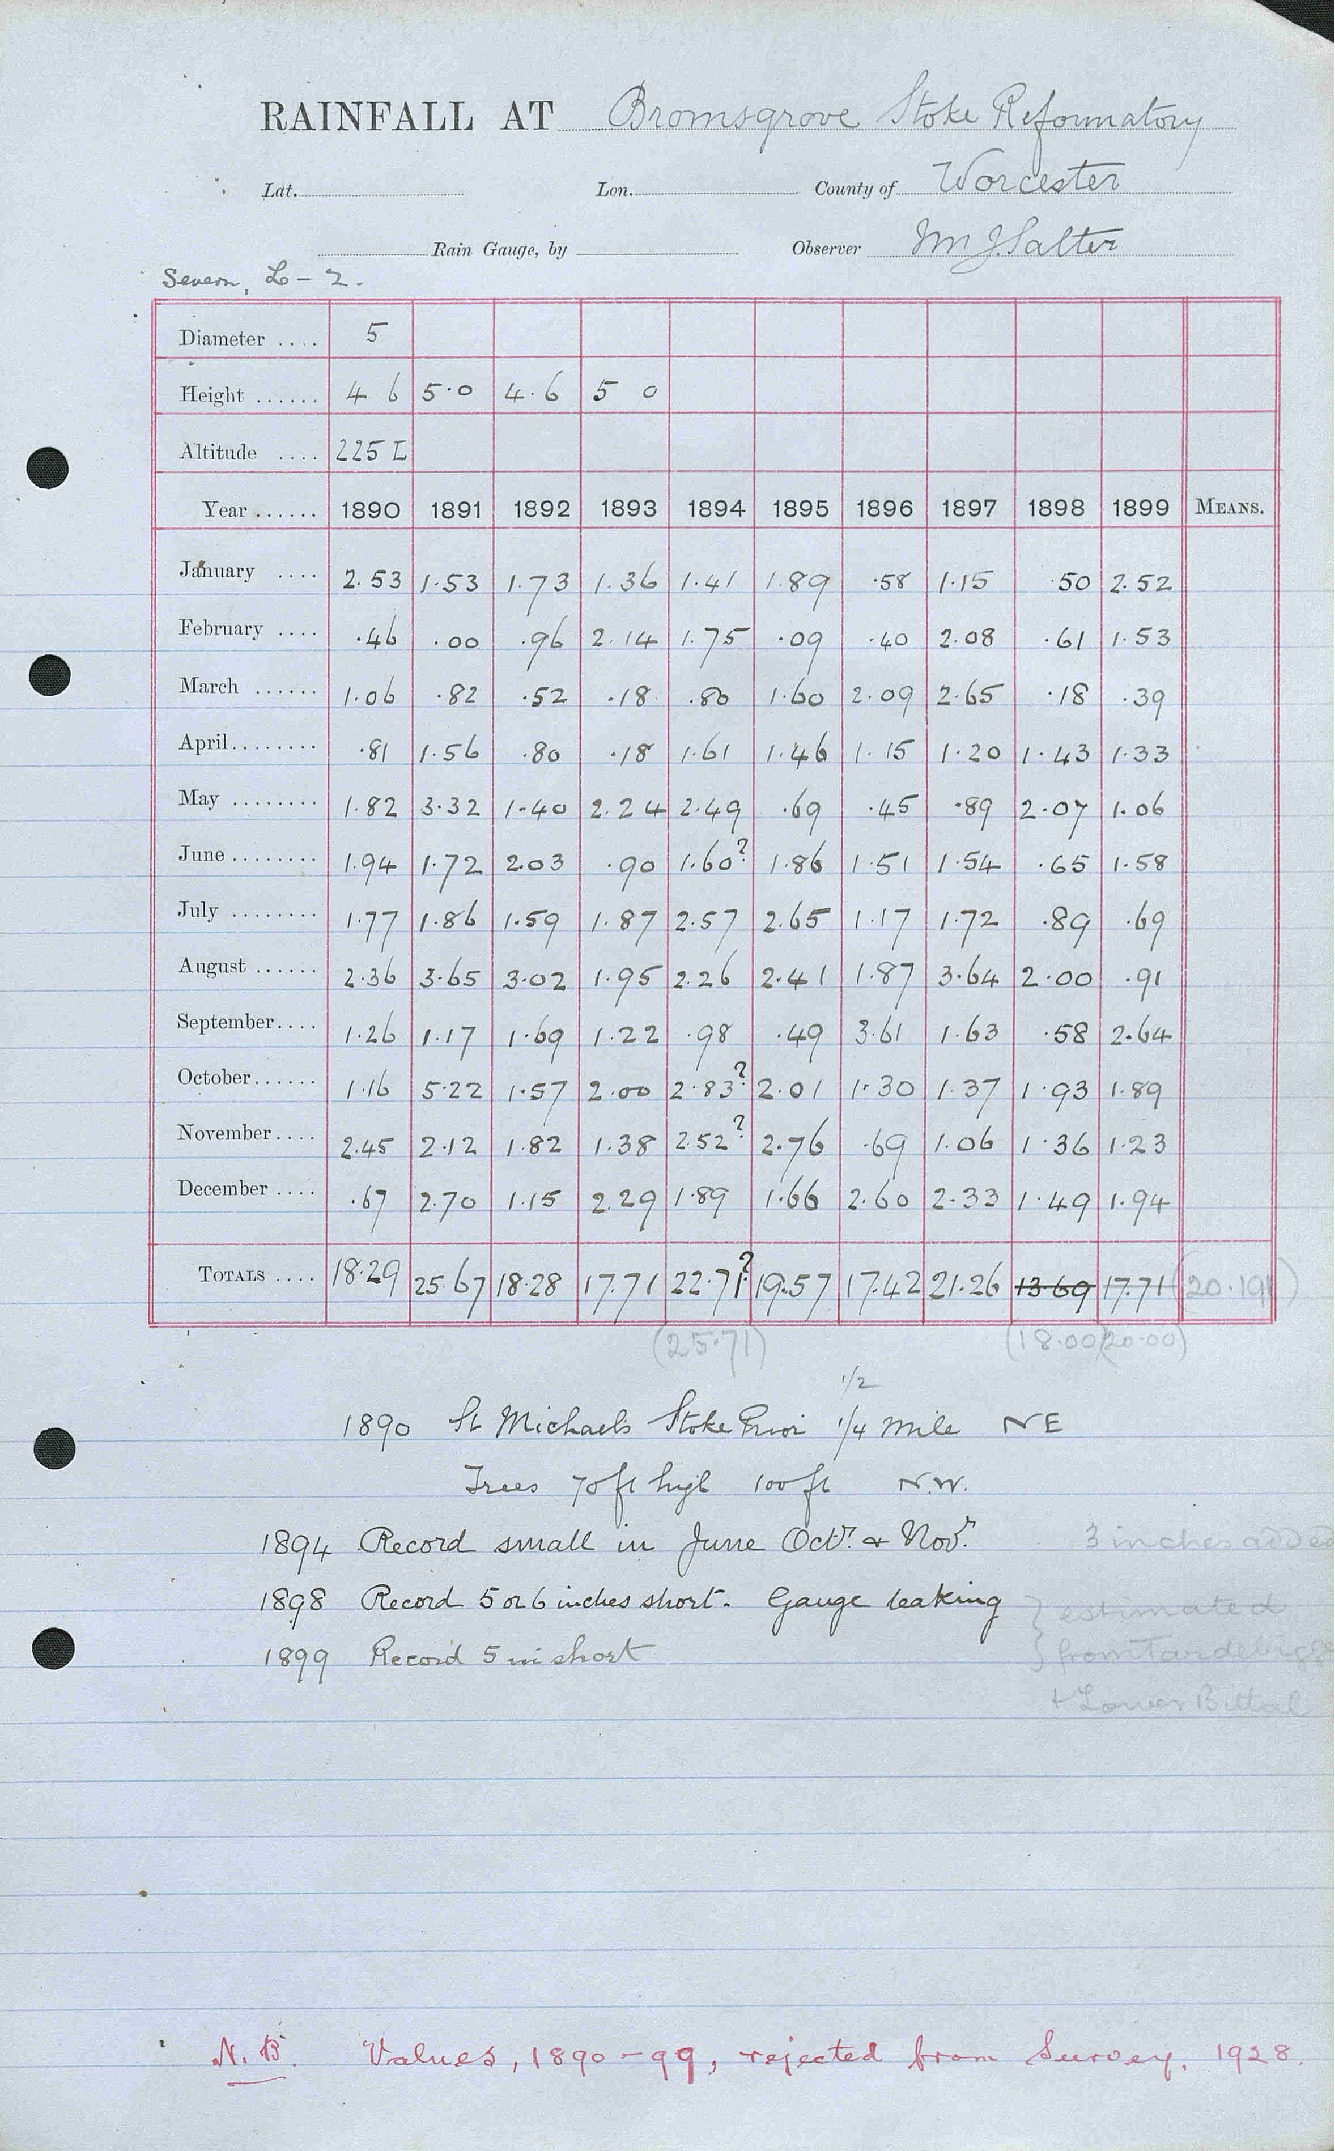 RAINFALL AT Bromsgrove Stoke Reformatory
Lat. Lon. County of Worcester
Rain Gauge, by Observer Wm J. Salter
Severn, L - 2.
Diameter .... 5
Height ...... 4 6 5.0 4.6 5 0
Altitude .... 225 L
Year ...... 1890 1891 1892 1893 1894 1895 1896 1897 1898 1899 MEANS.
January .... 2.53 1.53 1.73 1.36 1.41 1.89 .58 1.15 .50 2.52
February .... .46 .00 .96 2.14 1.75 .09 .40 2.08 .61 1.53
March ...... 1.06 .82 .52 .18 .80 1.60 2.09 2.65 .18 .39
April........ .81 1.56 .80 .18 1.61 1.46 1.15 1.20 1.43 1.33
May ........ 1.82 3.32 1.40 2.24 2.49 .69 .45 .89 2.07 1.06
June........ 1.94 1.72 2.03 .90 1.60? 1.86 1.51 1.54 .65 1.58
July ........ 1.77 1.86 1.59 1.87 2.57 2.65 1.17 1.72 .89 .69
August ...... 2.36 3.65 3.02 1.95 2.26 2.41 1.87 3.64 2.00 .91
September.... 1.26 1.17 1.69 1.22 .98 .49 3.61 1.63 .58 2.64
October...... 1.16 5.22 1.57 2.00 2.83? 2.01 1.30 1.37 1.93 1.89
November.... 2.45 2.12 1.82 1.38 2.52? 2.76 .69 1.06 1.36 1.23
December .... .67 2.70 1.15 2.29 1.89 1.66 2.60 2.33 1.49 1.94
TOTALS .... 18.29 25.67 18.28 17.71 22.71? 19.57 17.42 21.26 13.69 17.71 (20.191)
(25.71) (18.00) (20.00)
1/2
1890 St Michaels Stoke Prior 1/4 mile NE
Trees 70 ft high 100 ft N.W.
1894 Record small in June Octr. & Novr. 3 inches added
1898 Record 5 or 6 inches short. Gauge leaking } estimated
1899 Record 5 in short } from Tardebigge
+ Lower Bittal
N.B. Values, 1890-99, rejected from Survey. 1928.